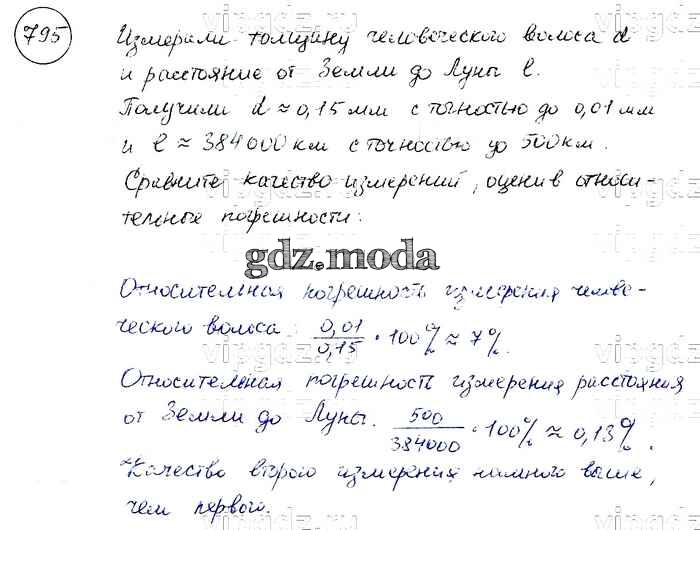 795
Измерили толщину человеческого волоса d
и расстояние от Земли до Луны l.
Получили d ≈ 0,15 мм с точностью до 0,01 мм
и l ≈ 384000 км с точностью до 500 км.
Сравните качество измерений, оценив относи-
тельные погрешности.
gdz.moda
Относительная погрешность измерения челове-
ческого волоса: 0,01/0,15 • 100% ≈ 7%.
Относительная погрешность измерения расстояния
от Земли до Луны. 500/384000 • 100% ≈ 0,13%.
Качество второго измерения намного выше,
чем первого.
vipgdz.ru